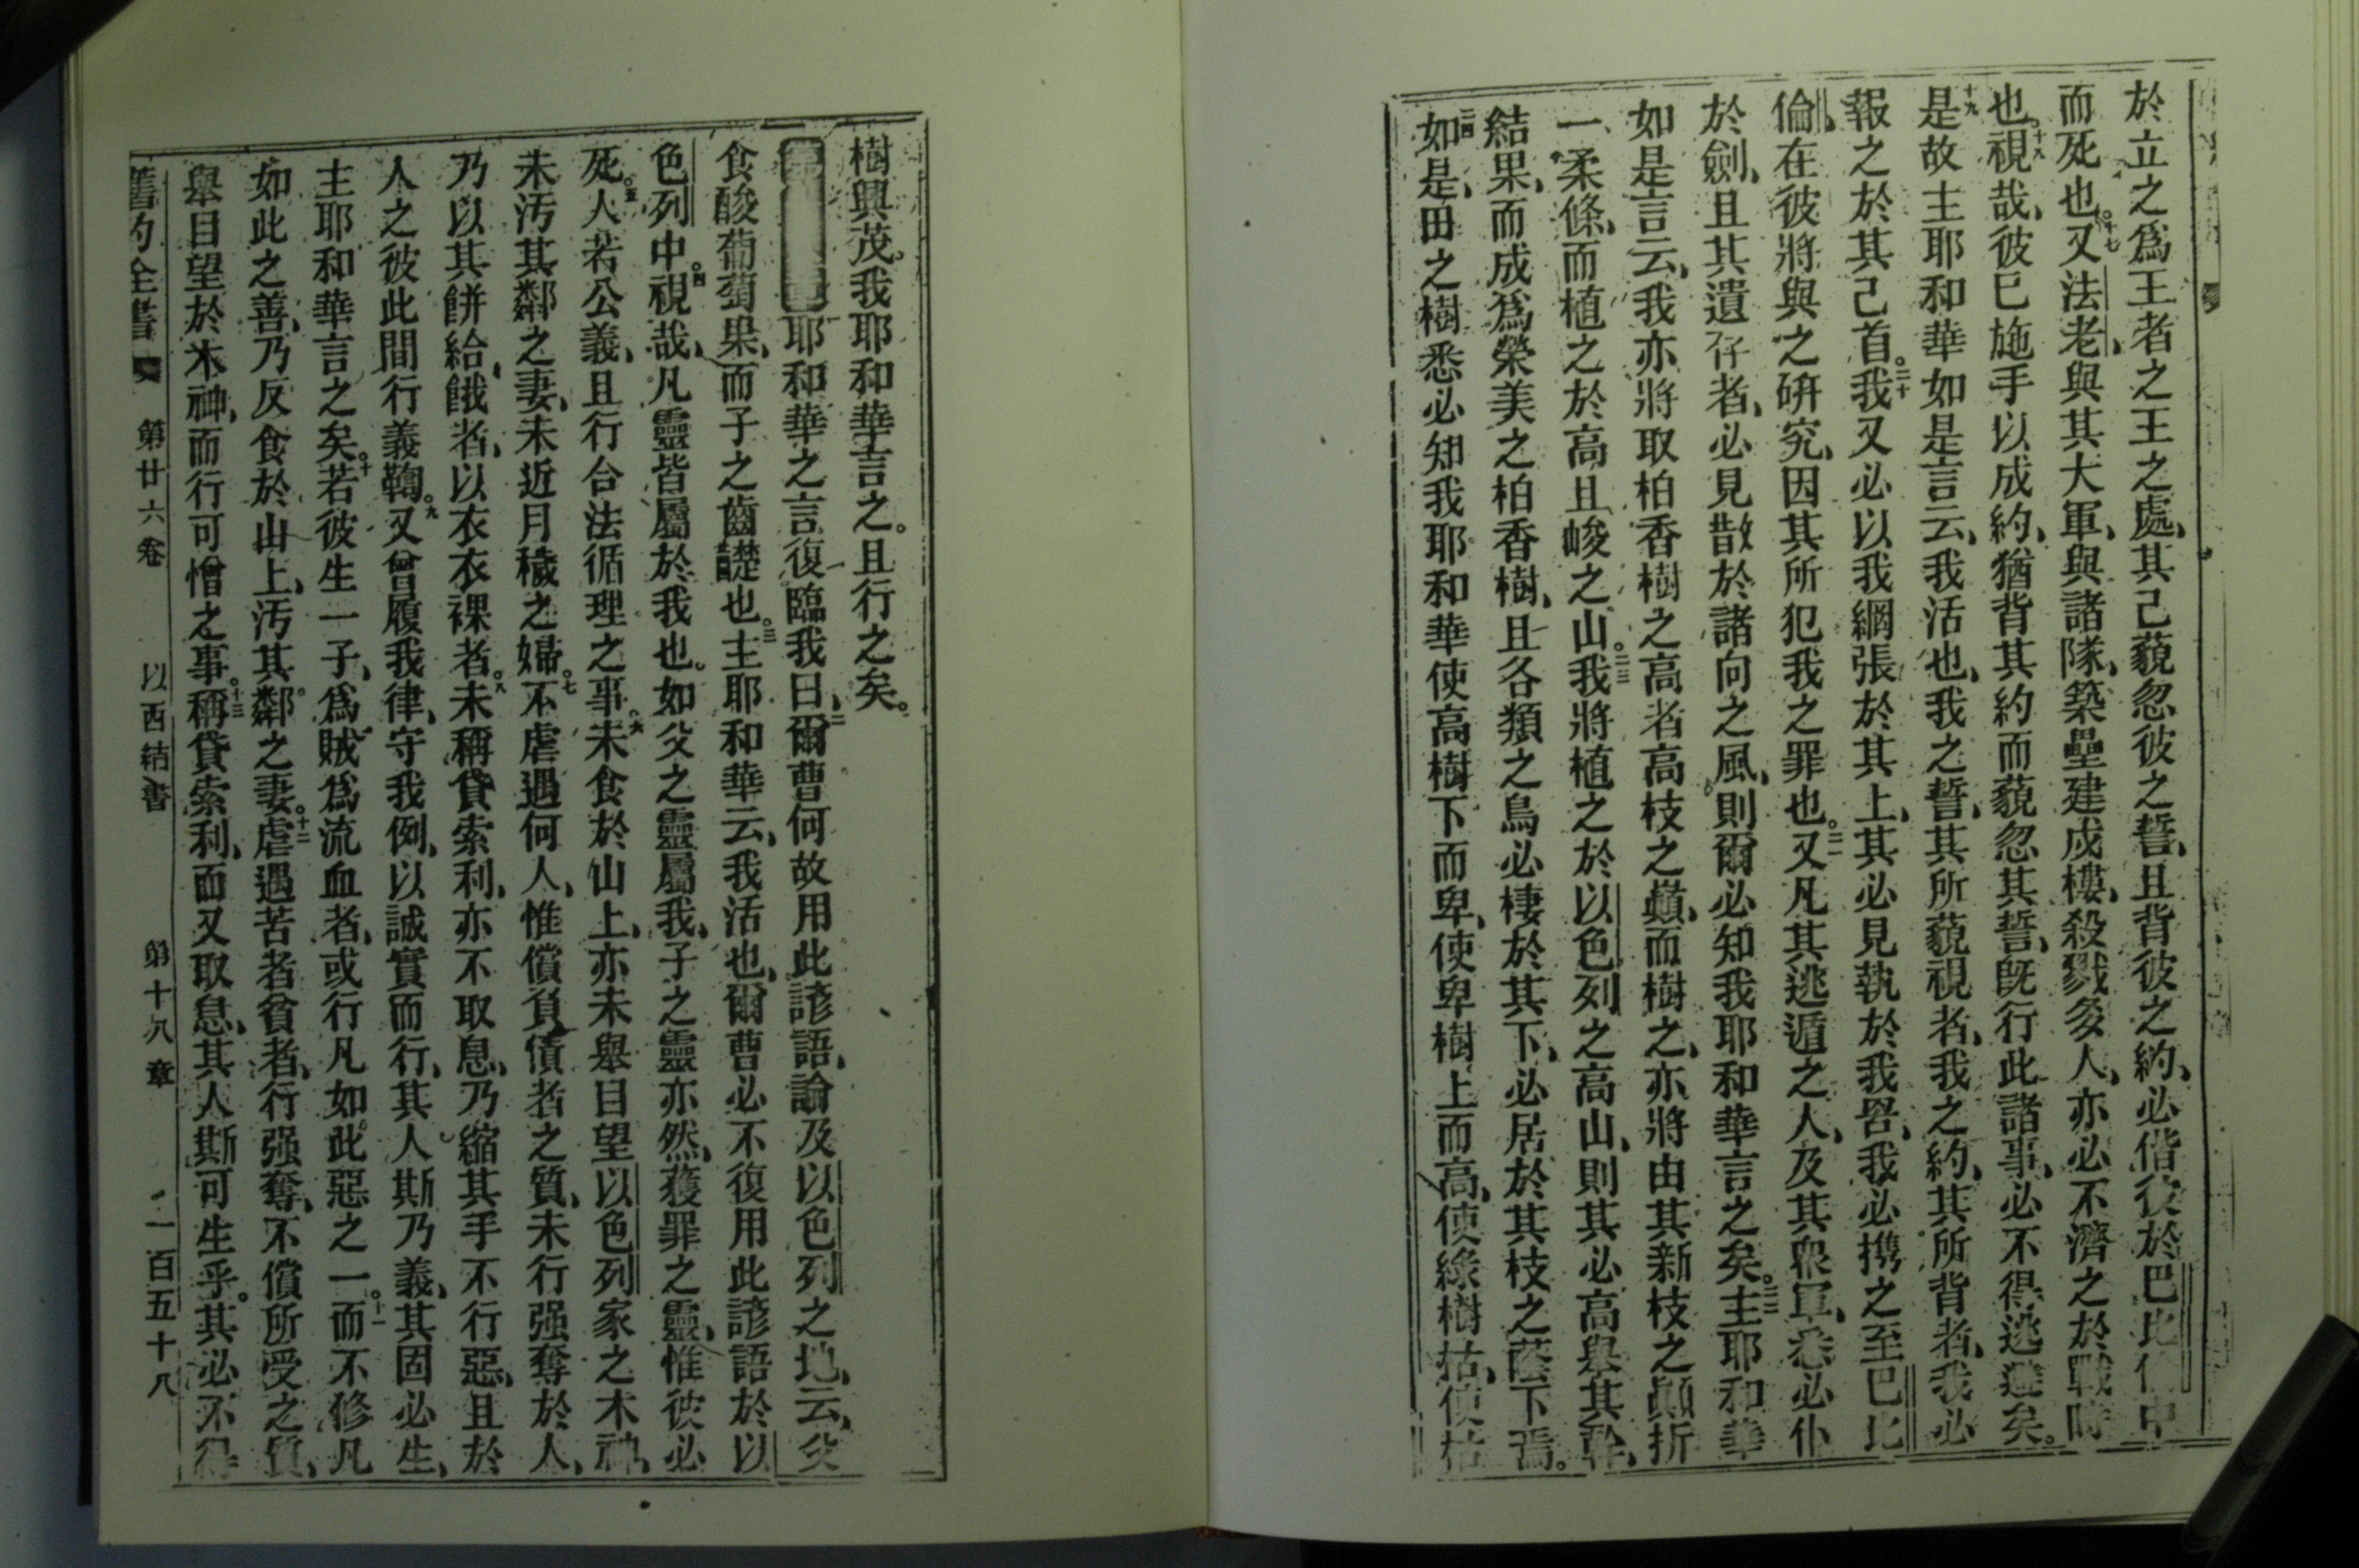 於立之爲王者之王之處、其己藐忽彼之誓、且背彼之約、必偕彼於巴比倫中
而死也。十七又法老、與其大軍、與諸隊、築壘建成樓、殺戮多人、亦必不濟之於戰時
也。十八視哉、彼已施手以成約、猶背其約而藐忽其誓、既行此諸事、必不得逃避矣。
十九是故主耶和華如是言云、我活也、我之誓、其所藐視者、我之約、其所背者、我必
報之於其己首。二十我又必以我網張於其上、其必見執於我罟、我必携之至巴比
倫、在彼將與之硏究、因其所犯我之罪也。二一又凡其逃遁之人、及其衆軍、悉必仆
於劍、且其遺存者、必見散於諸向之風、則爾必知我耶和華言之矣。二二主耶和華
如是言云、我亦將取柏香樹之高者高枝之巔、而樹之、亦將由其新枝之顚折
一柔條、而植之於高且峻之山。二三我將植之於以色列之高山、則其必高舉其幹、
結果、而成爲榮美之柏香樹、且各類之鳥必棲於其下、必居於其枝之蔭下焉。
二四如是、田之樹悉必知我耶和華使高樹下而卑、使卑樹上而高、使綠樹枯、使枯
樹興茂。我耶和華言之。且行之矣。
耶和華之言復臨我曰、二爾曹何故用此諺語、論及以色列之地、云、父
食酸葡萄果、而子之齒齼也。三主耶和華云、我活也、爾曹必不復用此諺語於以
色列中。四視哉、凡靈皆屬於我也。如父之靈屬我、子之靈亦然、獲罪之靈、惟彼必
死。五人若公義、且行合法循理之事。六未食於山上、亦未舉目望以色列家之木神、
未汚其鄰之妻、未近月穢之婦。七不虐遇何人、惟償負債者之質、未行强奪於人、
乃以其餅給餓者、以衣衣裸者。八未稱貸索利、亦不取息、乃縮其手不行惡、且於
人之彼此間行義鞫。九又曾履我律、守我例、以誠實而行、其人斯乃義、其固必生、
主耶和華言之矣。十若彼生一子、爲賊爲流血者、或行凡如此惡之一。十一而不修凡
如此之善、乃反食於山上、汚其鄰之妻。十二虐遇苦者貧者、行强奪、不償所受之質、
舉目望於木神、而行可憎之事。十三稱貸索利、而又取息、其人斯可生乎。其必不得
舊約全書 第廿六卷 以西結書 第十八章 一百五十八